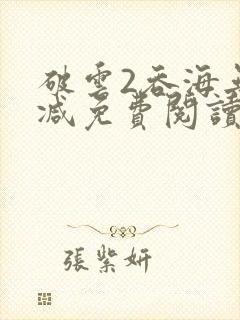 破雲2吞海無
減免費閱讀
張紫妍